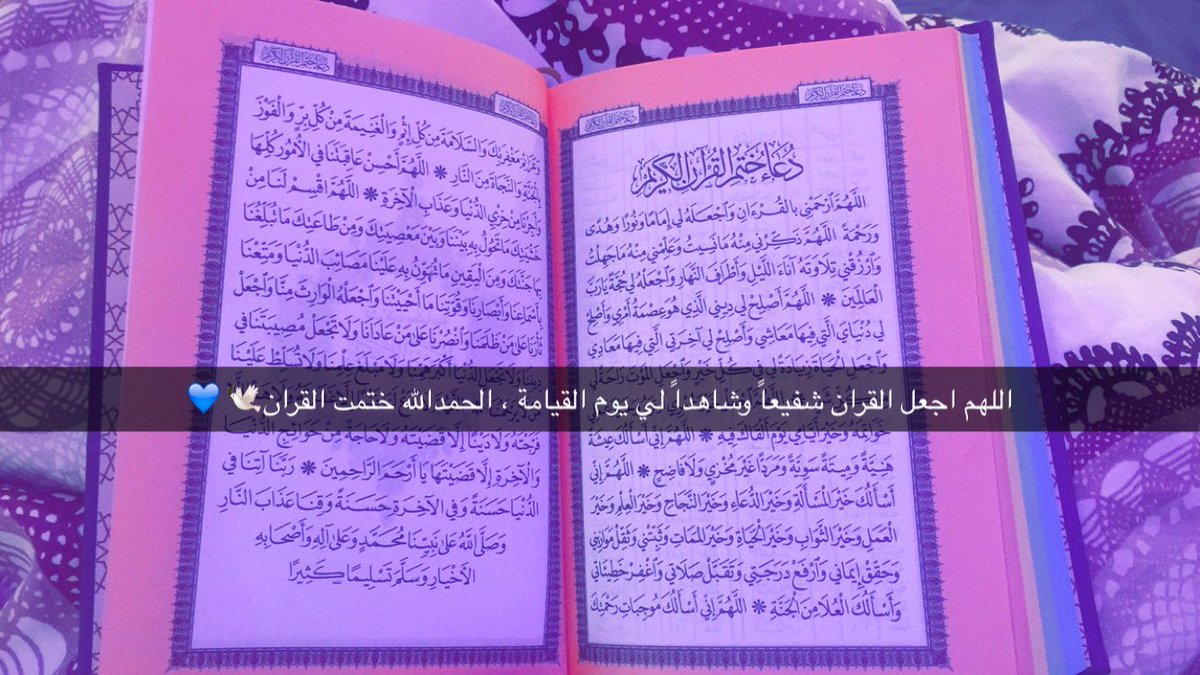 دعاء ختم القرآن الكريم
دعاء ختم القرآن الكريم
دُعَاءُ خَتْمِ القُرْآنِ الكَرِيمِ
اللَّهُمَّ ٱرْحَمْنِي بِالقُرْءَانِ وَٱجْعَلْهُ لِي إِمَامًا وَنُورًا وَهُدًى
وَرَحْمَةً اللَّهُمَّ ذَكِّرْنِي مِنْهُ مَا نَسِيتُ وَعَلِّمْنِي مِنْهُ مَا جَهِلْتُ
وَٱرْزُقْنِي تِلَاوَتَهُ آنَاءَ اللَّيْلِ وَأَطْرَافَ النَّهَارِ وَٱجْعَلْهُ لِي حُجَّةً يَارَبَّ
العَالَمِينَ * اللَّهُمَّ أَصْلِحْ لِي دِينِي الَّذِي هُوَ عِصْمَةُ أَمْرِي وَأَصْلِحْ
لِي دُنْيَايَ الَّتِي فِيهَا مَعَاشِي وَأَصْلِحْ لِي آخِرَتِي الَّتِي فِيهَا مَعَادِي
وَٱجْعَلِ الحَيَاةَ زِيَادَةً لِي فِي كُلِّ خَيْرٍ وَٱجْعَلِ المَوْتَ رَاحَةً لِي
اللهم اجعل القران شفيعاً وشاهداً لي يوم القيامة ، الحمدالله ختمت القران🕊💙
خَوَاتِمَهُ وَخَيْرَ أَيَّامِي يَوْمَ أَلْقَاكَ فِيهِ * اللَّهُمَّ إِنِّي أَسْأَلُكَ عِيشَةً
هَنِيَّةً وَمِيتَةً سَوِيَّةً وَمَرَدًّا غَيْرَ مُخْزٍي وَلَا فَاضِحٍ * اللَّهُمَّ إِنِّي
أَسْأَلُكَ خَيْرَ المَسْأَلَةِ وَخَيْرَ الدُّعَاءِ وَخَيْرَ النَّجَاحِ وَخَيْرَ العِلْمِ وَخَيْرَ
العَمَلِ وَخَيْرَ الثَّوَابِ وَخَيْرَ الحَيَاةِ وَخَيْرَ المَمَاتِ وَثَبِّتْنِي وَثَقِّلْ مَوَازِينِي
وَحَقِّقْ إِيمَانِي وَٱرْفَعْ دَرَجَتِي وَتَقَبَّلْ صَلَاتِي وَٱغْفِرْ خَطِيئَاتِي
وَأَسْأَلُكَ العُلَا مِنَ الجَنَّةِ * اللَّهُمَّ إِنِّي أَسْأَلُكَ مُوجِبَاتِ رَحْمَتِكَ
دعاء ختم القرآن الكريم
دعاء ختم القرآن الكريم
وَعَزَائِمَ مَغْفِرَتِكَ وَالسَّلَامَةَ مِنْ كُلِّ إِثْمٍ وَالْغَنِيمَةَ مِنْ كُلِّ بِرٍّ وَالْفَوْزَ
بِالجَنَّةِ وَالنَّجَاةَ مِنَ النَّارِ * اللَّهُمَّ أَحْسِنْ عَاقِبَتَنَا فِي الأُمُورِ كُلِّهَا
وَأَجِرْنَا مِنْ خِزْيِ الدُّنْيَا وَعَذَابِ الآخِرَةِ * اللَّهُمَّ ٱقْسِمْ لَنَا مِنْ
خَشْيَتِكَ مَا تَحُولُ بِهِ بَيْنَنَا وَبَيْنَ مَعْصِيَتِكَ وَمِنْ طَاعَتِكَ مَا تُبَلِّغُنَا
بِهَا جَنَّتَكَ وَمِنَ اليَقِينِ مَا تُهَوِّنُ بِهِ عَلَيْنَا مَصَائِبَ الدُّنْيَا وَمَتِّعْنَا
بِأَسْمَاعِنَا وَأَبْصَارِنَا وَقُوَّتِنَا مَا أَحْيَيْتَنَا وَٱجْعَلْهُ الوَارِثَ مِنَّا وَٱجْعَلْ
ثَأْرَنَا عَلَى مَنْ ظَلَمَنَا وَٱنْصُرْنَا عَلَى مَنْ عَادَانَا وَلَا تَجْعَلْ مُصِيبَتَنَا فِي
دِينِنَا وَلَا تَجْعَلِ الدُّنْيَا أَكْبَرَ هَمِّنَا وَلَا مَبْلَغَ عِلْمِنَا وَلَا تُسَلِّطْ عَلَيْنَا
فَرَّجْتَهُ وَلَا دَيْنًا إِلَّا قَضَيْتَهُ وَلَا حَاجَةً مِنْ حَوَائِجِ الدُّنْيَا
وَالْآخِرَةِ إِلَّا قَضَيْتَهَا يَا أَرْحَمَ الرَّاحِمِينَ * رَبَّنَا آتِنَا فِي
الدُّنْيَا حَسَنَةً وَفِي الآخِرَةِ حَسَنَةً وَقِنَا عَذَابَ النَّارِ
وَصَلَّى اللَّهُ عَلَى نَبِيِّنَا مُحَمَّدٍ وَعَلَى آلِهِ وَأَصْحَابِهِ
الأَخْيَارِ وَسَلَّمَ تَسْلِيمًا كَثِيرًا